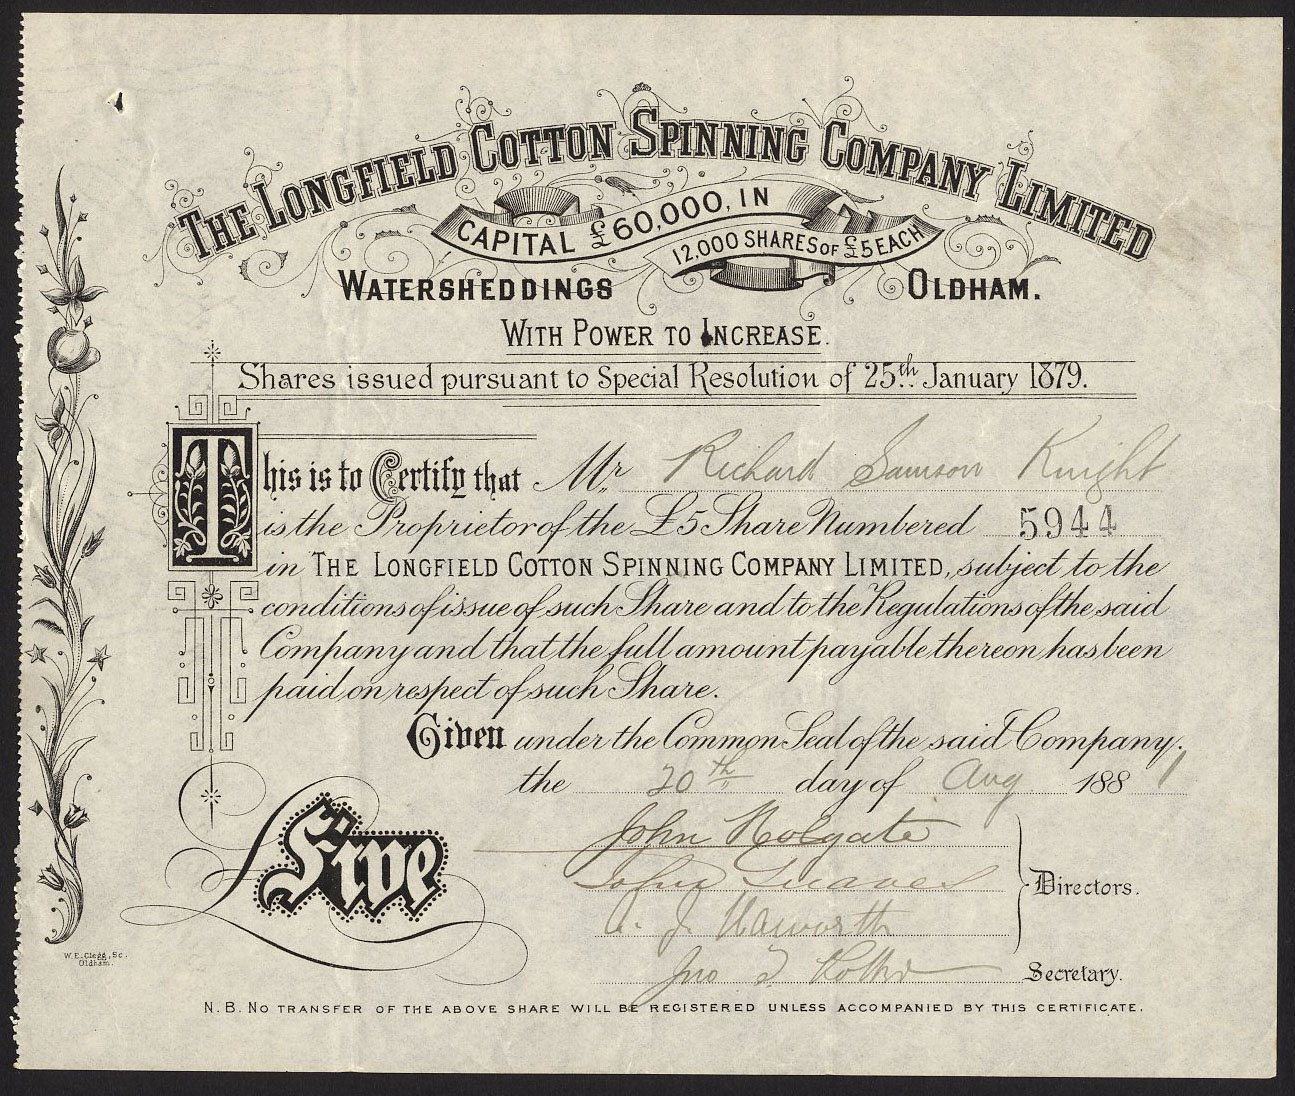 THE LONGFIELD COTTON SPINNING COMPANY LIMITED
CAPITAL £60,000, IN
12,000 SHARES OF £5 EACH
WATERSHEDDINGS OLDHAM.
WITH POWER TO INCREASE.
Shares issued pursuant to Special Resolution of 25th January 1879.
This is to Certify that Mr Richard Samson Knight
is the Proprietor of the £5 Share Numbered 5944
in THE LONGFIELD COTTON SPINNING COMPANY LIMITED, subject to the
conditions of issue of such Share and to the Regulations of the said
Company and that the full amount payable thereon has been
paid on respect of such Share.
Given under the Common Seal of the said Company.
the 20th day of Aug 1881
Five
John Holgate
John
J. Haworth
Directors.
Jno
Secretary.
W.E. Clegg, Sc.
Oldham.
N.B. NO TRANSFER OF THE ABOVE SHARE WILL BE REGISTERED UNLESS ACCOMPANIED BY THIS CERTIFICATE.